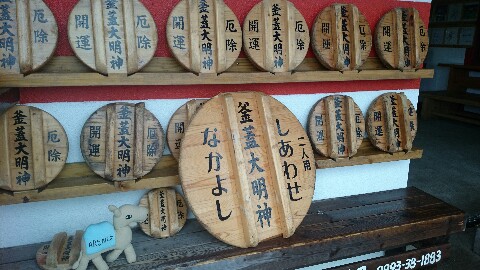 釜蓋大明神
開運
釜蓋大明神
厄除
開運
釜蓋大明神
厄除
開運
釜蓋大明神
厄除
開運
釜蓋大明神
厄除
開運
釜蓋大明神
厄除
釜蓋大明神
厄除
開運
釜蓋大明神
厄除
開
開運
釜蓋大明神
厄除
開運
釜蓋大明神
厄除
二人用
しあわせ
釜蓋大明神
なかよし
0993-38-1883